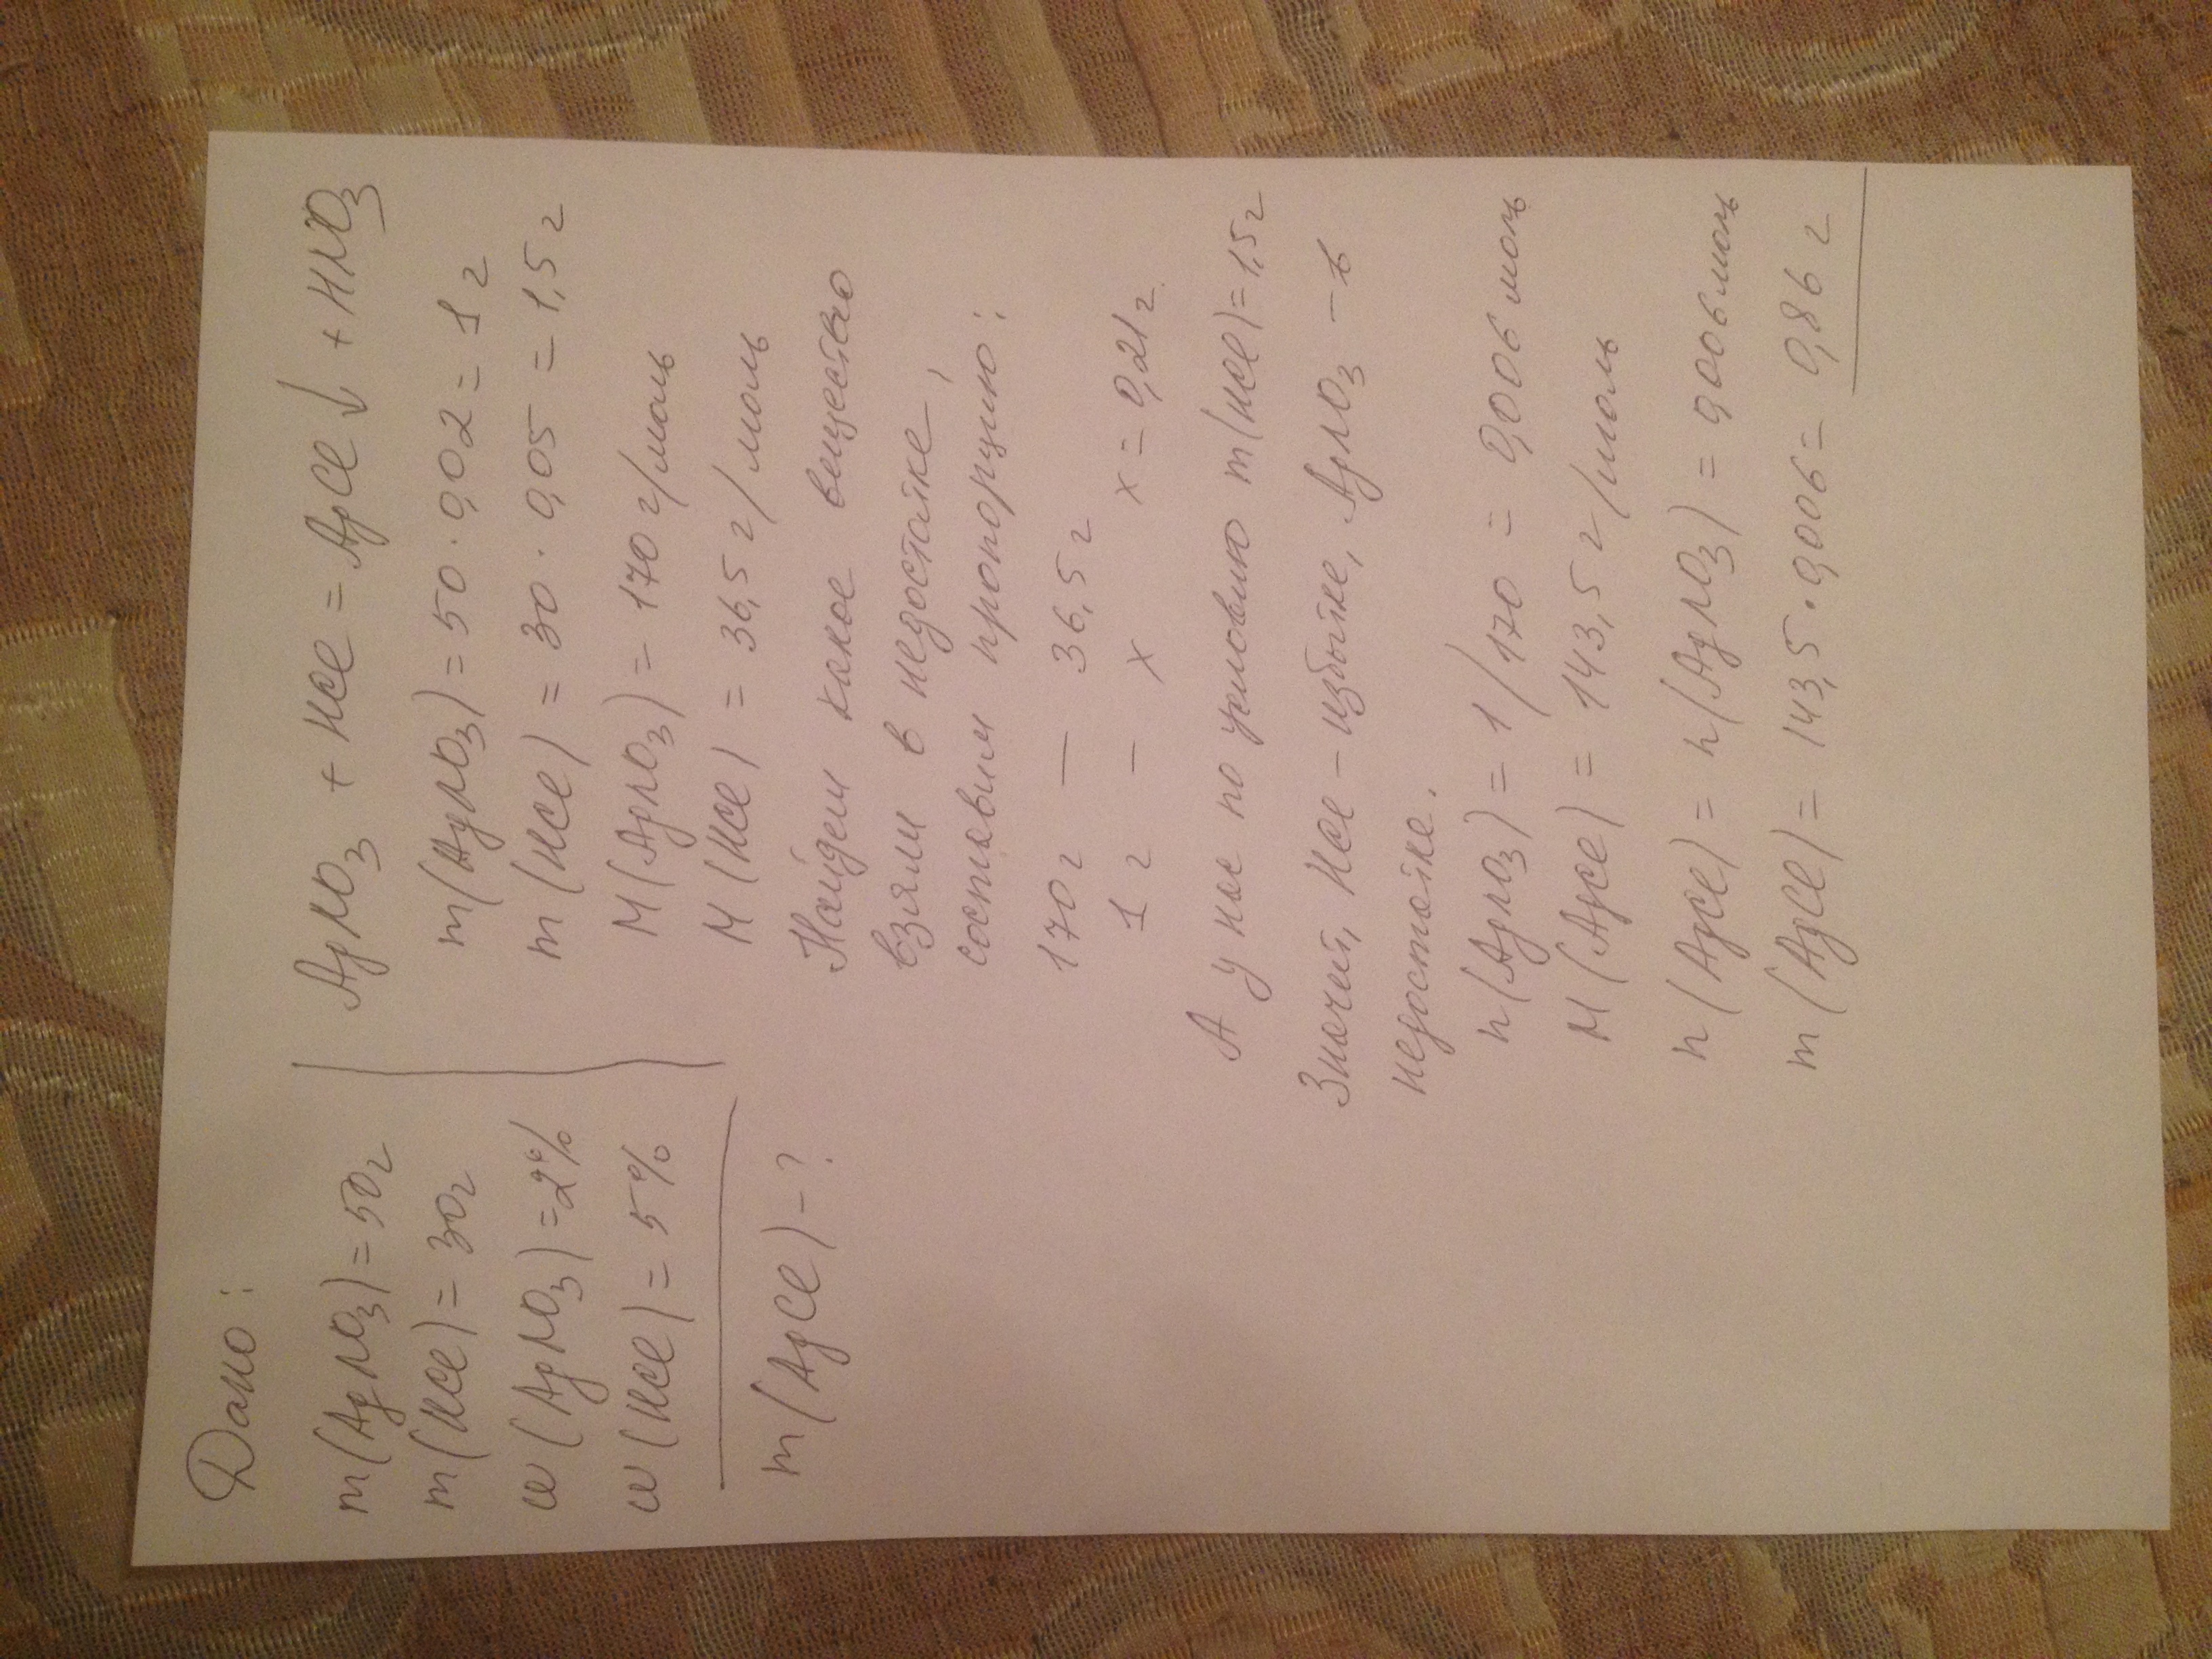 Дано:
m(AgNO3) = 50г
m(HCl) = 30г
w(AgNO3) = 2%
w(HCl) = 5%
m(AgCl) - ?
AgNO3 + HCl = AgCl↓ + HNO3
m(AgNO3) = 50 · 0,02 = 1 г
m(HCl) = 30 · 0,05 = 1,5 г
M(AgNO3) = 170 г/моль
M(HCl) = 36,5 г/моль
Найдем какое вещество
взяли в недостатке,
составим пропорцию:
170 г — 36,5 г
1 г — x x = 0,21 г
А у нас по условию m(HCl) = 1,5 г
Значит, HCl - избытке, AgNO3 - в
недостатке.
n(AgNO3) = 1/170 = 0,006 моль
M(AgCl) = 143,5 г/моль
n(AgCl) = n(AgNO3) = 0,006 моль
m(AgCl) = 143,5 · 0,006 = 0,86 г